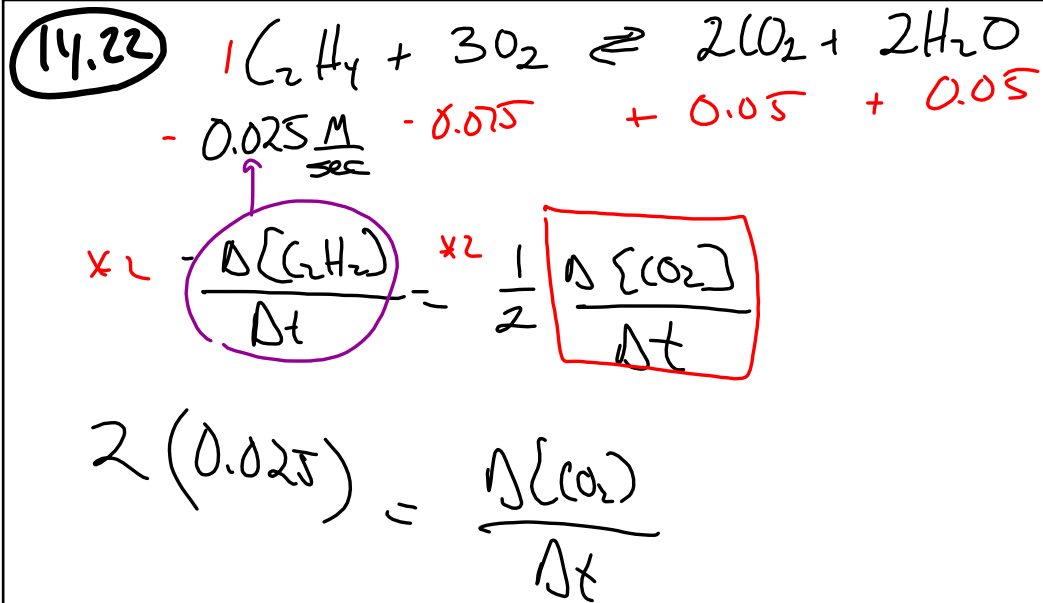 14.22 1 C₂H₄ + 3O₂ ⇌ 2CO₂ + 2H₂O
- 0.025 M/sec - 0.075 + 0.05 + 0.05
×2 - Δ[C₂H₂]/Δt = ×2 1/2 Δ[CO₂]/Δt
2(0.025) = Δ[CO₂)/Δt